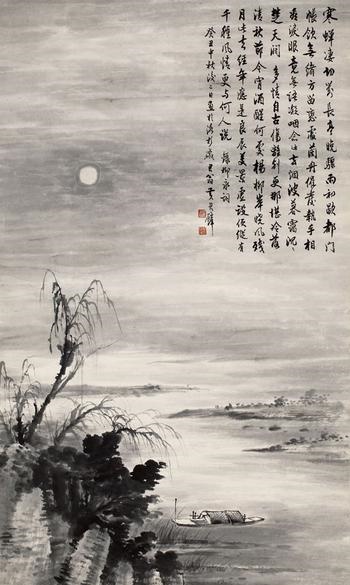 寒蟬淒切對長亭晚驟雨初歇都門
帳飲無緒方留戀處蘭舟催發執手相
看淚眼竟無語凝咽念去去烟波暮靄沈〻
楚天闊多情自古傷離別更那堪冷落
清秋節今宵酒醒何處楊柳岸曉風殘
月此去經年應是良辰美景虛設便縱有
千種風情更與何人說 柳永詞
癸丑中秋後二日畫於